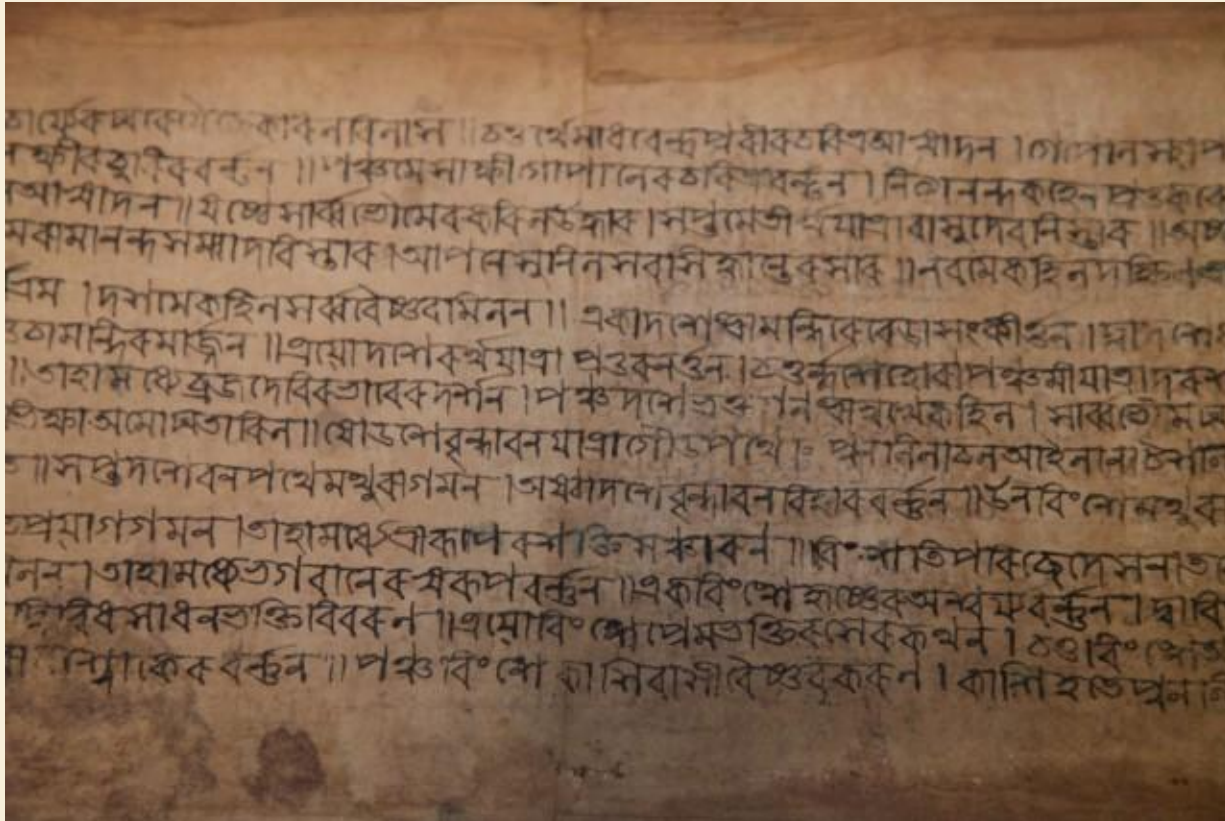 করিল বিলাস ॥ চতুর্থে মাধবেন্দ্রপুরীর চরিত্র আস্বাদন । গোপাল স্থাপ
ক্ষীর চুরির বর্ন্নন ॥ পঞ্চমে সাক্ষীগোপালের চরিত্র বর্ন্নন । নিত্যানন্দ কহেন প্রভু করে
আস্বাদন ॥ ষষ্ঠে সার্ব্বভৌমের করিল উদ্ধার । সপ্তমে তীর্থযাত্রা বাসুদেব নিস্তার ॥ অষ্ট
মে রামানন্দ সম্বাদ বিস্তার । আপনে সুনিল সর্ব্বসিদ্ধান্তের সার ॥ নবমে কহিল দক্ষিন
। দশমে কহিল সর্ব্ব বৈষ্ণব মিলন ॥ একাদশে শ্রীমন্দিরে বেড়া সংকীর্ত্তন । দ্বাদশে
মন্দির মার্জ্জন ॥ ত্রয়োদশে রথযাত্রা প্রভুর নর্ত্তন । চতুর্দ্দশে হোরাপঞ্চমী যাত্রা
॥ তাহা মধ্যে ব্রজদেবির ভাবের দর্শন । পঞ্চদশে ভক্ত গুন শ্রীমুখে কহিল । সার্ব্বভৌম
ভিক্ষা অমোঘ তারিল ॥ ষোড়শে বৃন্দাবন যাত্রা গৌড়পথে । পুন নিলাচল আইলা
॥ সপ্তদশে বনপথে মথুরা গমন । অষ্টাদশে বৃন্দাবন বিহার বর্ন্নন ॥ উনবিংশে মথুরা
প্রয়াগ গমন । তাহা মধ্যে শ্রীরূপের শক্তি সঞ্চারন ॥ বিংশতি পরিচ্ছেদে সনাত
। তাহা মধ্যে ভগবানের স্বরূপ বর্ন্নন ॥ একবিংশে কৃষ্ণের ঐশ্বর্য্য বর্ন্নন । দ্বাবি
দ্বিবিধ সাধনভক্তি বিবরন ॥ ত্রয়োবিংশে প্রেমভক্তি রসের কথন । চতুর্বিংশে
শ্লোকের বর্ন্নন ॥ পঞ্চবিংশে কাশিবাসী বৈষ্ণব করন । কাশি হতে পুন